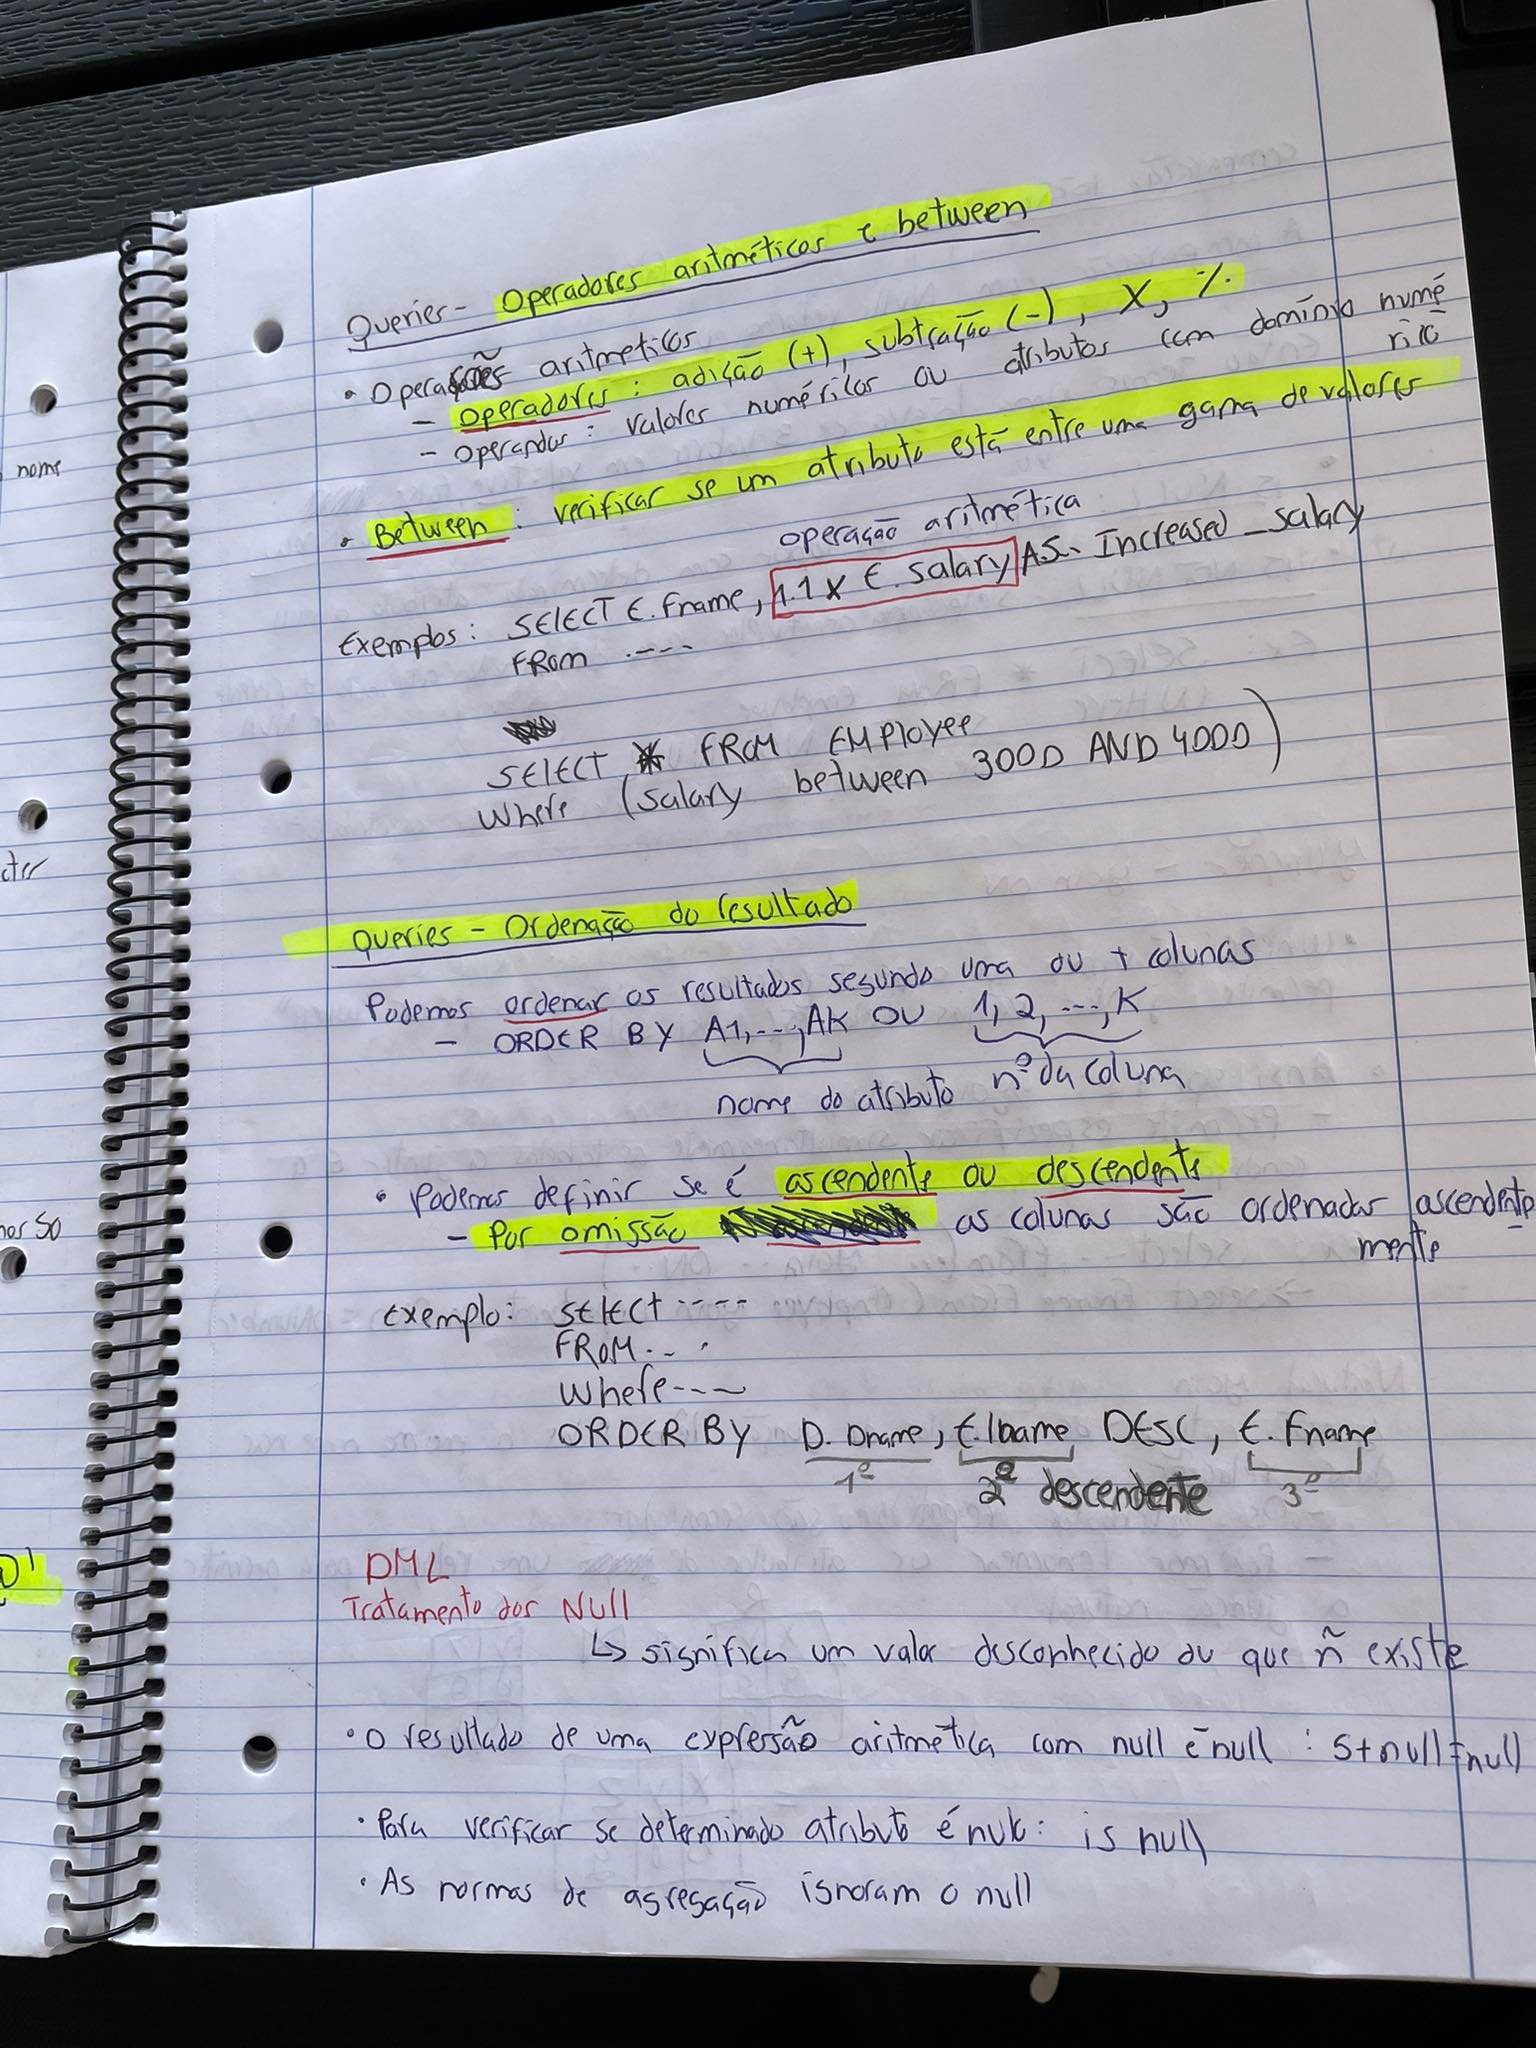 Queries - Operadores aritméticos e between
• Operações aritmeticas
- operadores : adição (+), subtração (-), X, %
- operandos : valores numéricos ou atributos com domínio numé
rico
• Between : verificar se um atributo está entre uma gama de valores
operação aritmética
Exemplos: SELECT E.Fname, 1.1 x E.salary AS Increased_salary
FROM ....
SELECT * FROM EMPloyee
Where (salary between 3000 AND 4000)
Queries - Ordenação do resultado
Podemos ordenar os resultados segundo uma ou + colunas
- ORDER BY A1,...,AK OU 1, 2, ..., K
nome do atributo nº da coluna
• Podemos definir se é ascendente ou descendente
- Por omissão as colunas são ordenadas ascendente
mente
Exemplo: SELECT ....
FROM...
Where....
ORDER BY D. Dname, E.lname DESC, E. Fname
1º 2º descendente 3º
DML
Tratamento dos Null
↳ significa um valor desconhecido ou que ñ existe
• O resultado de uma expressão aritmética com null é null : 5+null=null
• Para verificar se determinado atributo é null: is null
• As normas de agregação ignoram o null
nome
cter
nos so
D'